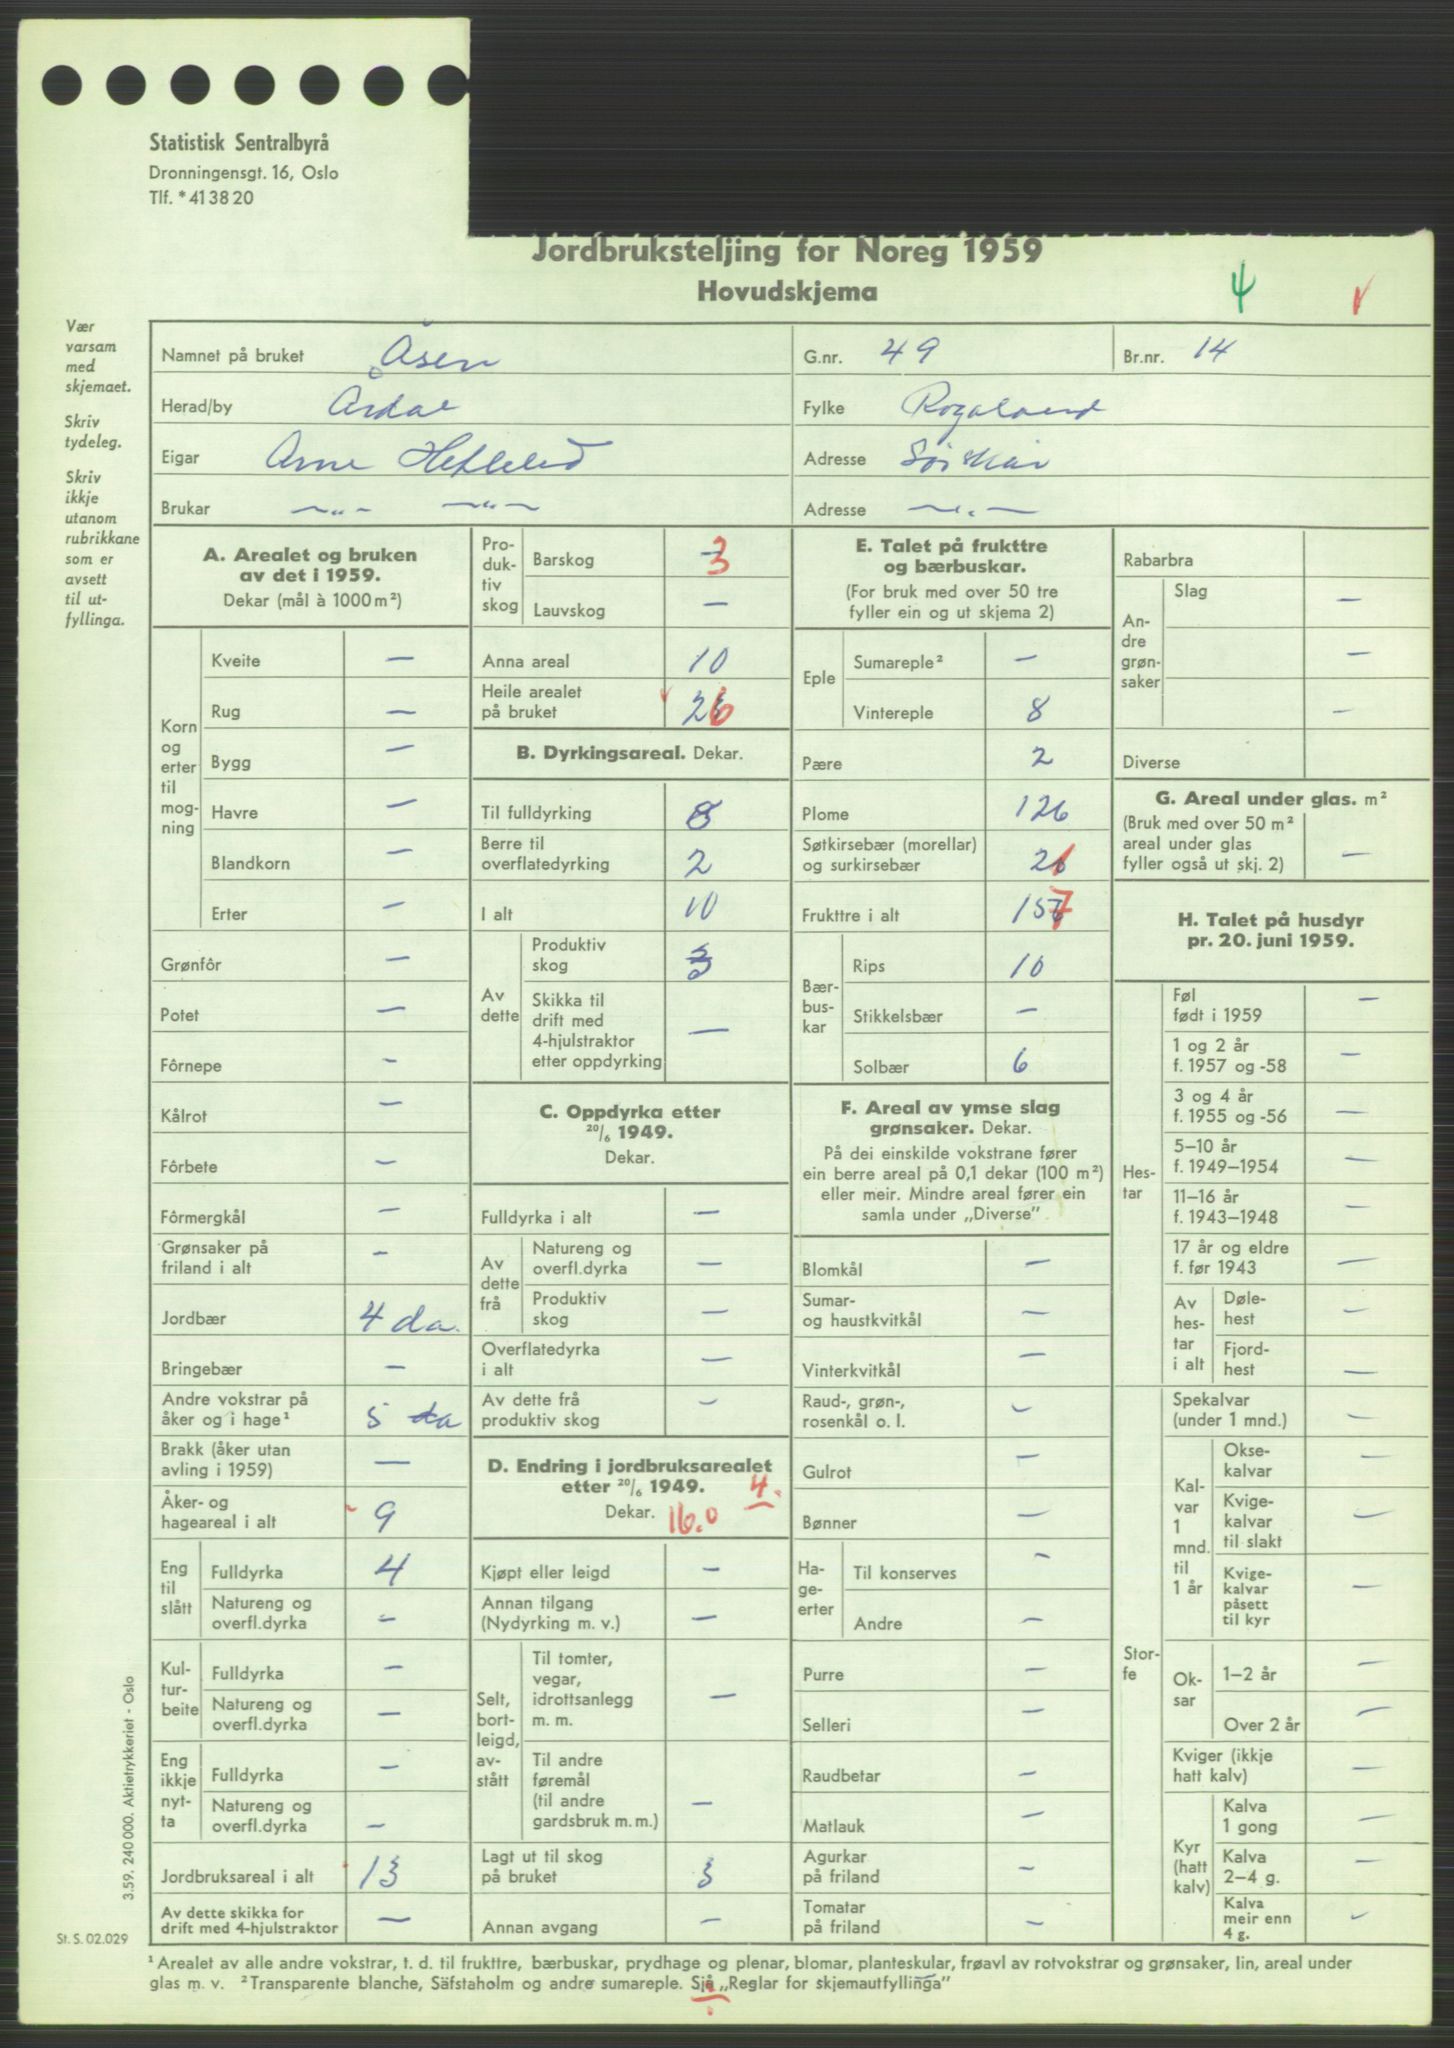 Statistisk Sentralbyrå
Dronningensgt. 16, Oslo
Tlf. *41 38 20
Jordbruksteljing for Noreg 1959
Hovudskjema
4
Vær varsam med skjemaet.
Skriv tydeleg.
Skriv ikkje utanom rubrikkane som er avsett til ut-fyllinga.
Namnet på bruket Åsen G.nr. 49 Br.nr. 14
Herad/by Årdal Fylke Rogaland
Eigar Arne Adresse
Brukar —„— —„— Adresse —„—
A. Arealet og bruken
av det i 1959.
Dekar (mål à 1000 m²)
Korn og erter til mog-ning
Kveite —
Rug —
Bygg —
Havre —
Blandkorn —
Erter —
Grønfôr —
Potet —
Fôrnepe —
Kålrot —
Fôrbete —
Fôrmergkål —
Grønsaker på friland i alt —
Jordbær 4 da.
Bringebær —
Andre vokstrar på åker og i hage¹ 5 da
Brakk (åker utan avling i 1959) —
Åker- og hageareal i alt 9
Eng til slått
Fulldyrka 4
Natureng og overfl.dyrka —
Kul-tur-beite
Fulldyrka —
Natureng og overfl.dyrka —
Eng ikkje nyt-ta
Fulldyrka —
Natureng og overfl.dyrka —
Jordbruksareal i alt 13
Av dette skikka for drift med 4-hjulstraktor —
Pro-duk-tiv skog
Barskog 3
Lauvskog —
Anna areal 10
Heile arealet på bruket 26
B. Dyrkingsareal. Dekar.
Til fulldyrking 8
Berre til overflatedyrking 2
I alt 10
Av dette
Produktiv skog 3
Skikka til drift med 4-hjulstraktor etter oppdyrking —
C. Oppdyrka etter
20/6 1949.
Dekar.
Fulldyrka i alt —
Av dette frå
Natureng og overfl.dyrka —
Produktiv skog —
Overflatedyrka i alt —
Av dette frå produktiv skog —
D. Endring i jordbruksarealet
etter 20/6 1949. 4.
Dekar. 16.0
Kjøpt eller leigd —
Annan tilgang (Nydyrking m. v.) —
Selt, bort-leigd, av-stått
Til tomter, vegar, idrottsanlegg m. m. —
Til andre føremål (til andre gardsbruk m. m.) —
Lagt ut til skog på bruket 3
Annan avgang —
E. Talet på frukttre
og bærbuskar.
(For bruk med over 50 tre
fyller ein og ut skjema 2)
Eple
Sumareple² —
Vintereple 8
Pære 2
Plome 126
Søtkirsebær (morellar) og surkirsebær 21
Frukttre i alt 157
Bær-bus-kar
Rips 10
Stikkelsbær —
Solbær 6
F. Areal av ymse slag
grønsaker. Dekar.
På dei einskilde vokstrane fører
ein berre areal på 0,1 dekar (100 m²)
eller meir. Mindre areal fører ein
samla under „Diverse”
Blomkål —
Sumar- og haustkvitkål —
Vinterkvitkål —
Raud-, grøn-, rosenkål o. l. —
Gulrot —
Bønner —
Ha-ge-erter
Til konserves —
Andre —
Purre —
Selleri —
Raudbetar —
Matlauk —
Agurkar på friland —
Tomatar på friland —
Rabarbra
An-dre grøn-saker
Slag —
—
—
Diverse
G. Areal under glas. m²
(Bruk med over 50 m²
areal under glas
fyller også ut skj. 2) —
H. Talet på husdyr
pr. 20. juni 1959.
Hes-tar
Føl født i 1959 —
1 og 2 år f. 1957 og -58 —
3 og 4 år f. 1955 og -56 —
5–10 år f. 1949–1954 —
11–16 år f. 1943–1948 —
17 år og eldre f. før 1943 —
Av hes-tar i alt
Døle-hest —
Fjord-hest —
Stor-fe
Spekalvar (under 1 mnd.) —
Kal-var 1 mnd. til 1 år
Okse-kalvar
Kvige-kalvar til slakt —
Kvige-kalvar påsett til kyr —
Ok-sar
1–2 år —
Over 2 år —
Kviger (ikkje hatt kalv) —
Kyr (hatt kalv)
Kalva 1 gong —
Kalva 2–4 g. —
Kalva meir enn 4 g. —
¹ Arealet av alle andre vokstrar, t. d. til frukttre, bærbuskar, prydhage og plenar, blomar, planteskular, frøavl av rotvokstrar og grønsaker, lin, areal under
glas m. v. ² Transparente blanche, Säfstaholm og andre sumareple. Sjå „Reglar for skjemautfyllinga”
3.59. 240 000. Aktietrykkeriet - Oslo
St. S. 02.029